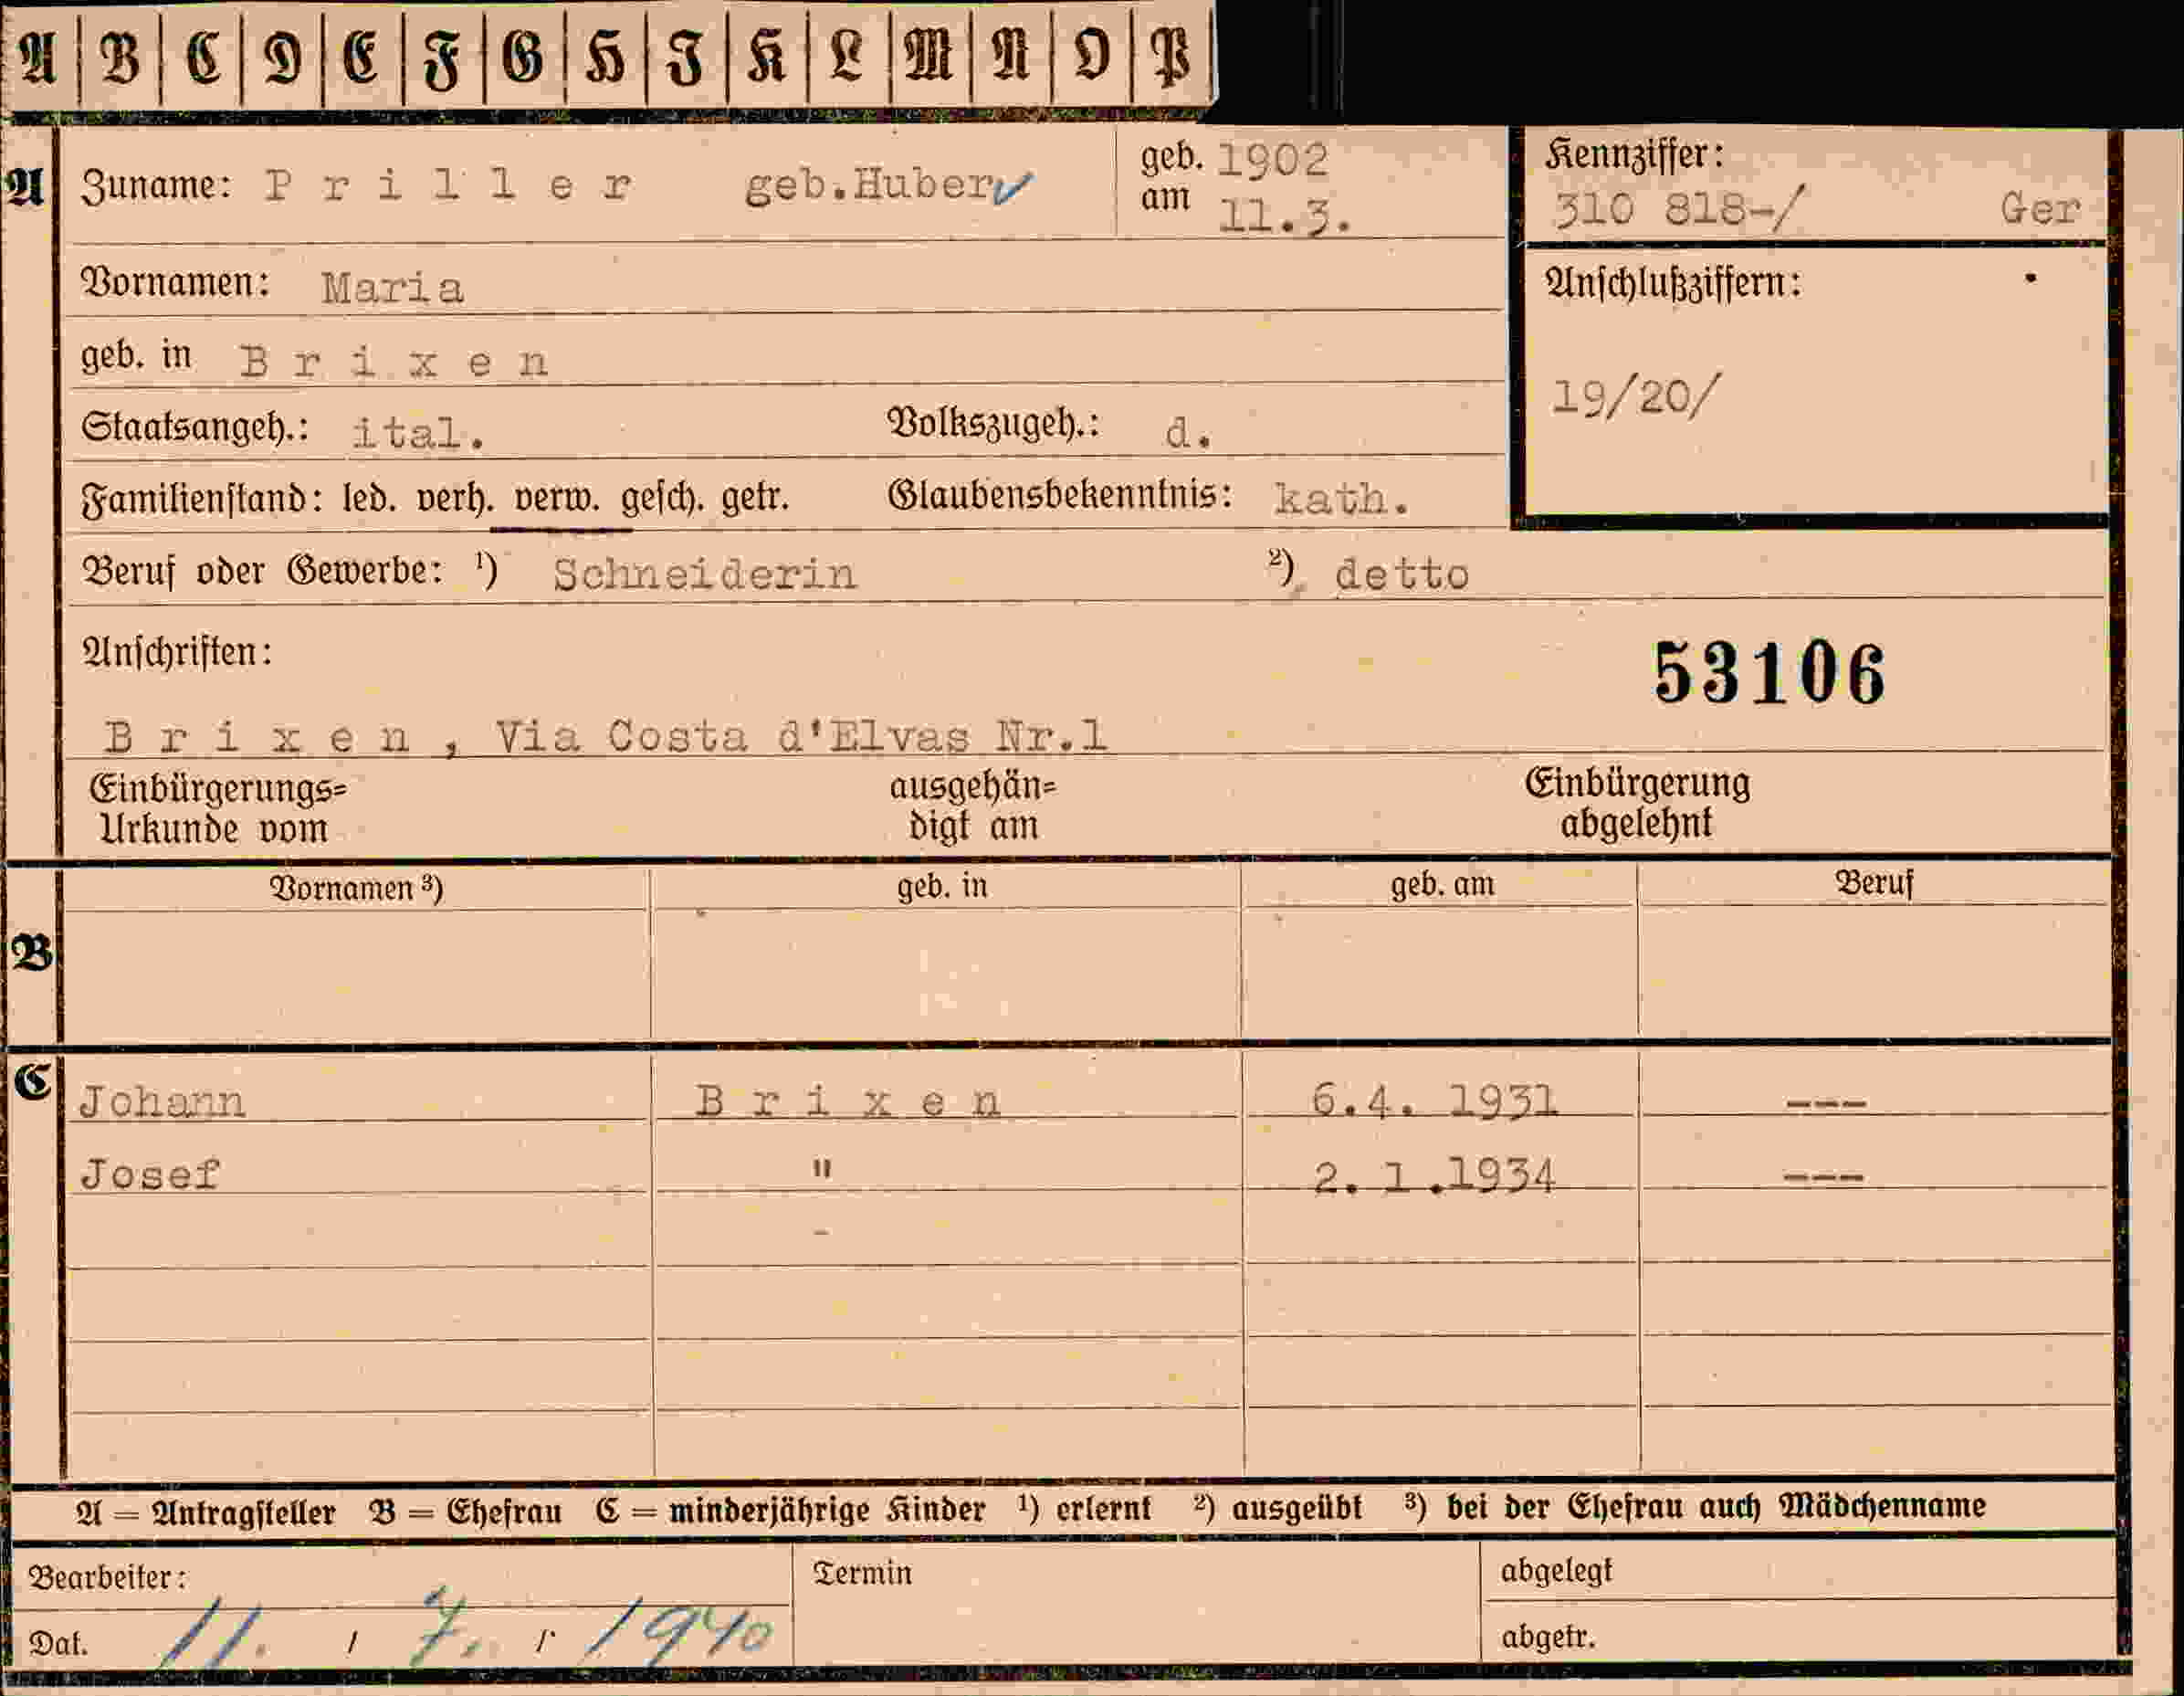 A B C D E F G H I K L M N O P
A Zuname: Priller geb.Huber geb. am 1902 11.3. Kennziffer: 310 818-/ Ger
Vornamen: Maria Anschlußziffern:
geb. in Brixen
19/20/
Staatsangeh.: ital. Volkszugeh.: d.
Familienstand: led. verh. verw. gesch. getr. Glaubensbekenntnis: kath.
Beruf oder Gewerbe: ¹) Schneiderin ²) detto
Anschriften: 53106
Brixen, Via Costa d'Elvas Nr.1
Einbürgerungs= ausgehän= Einbürgerung
Urkunde vom digt am abgelehnt
Vornamen ³) geb. in geb. am Beruf
B
C
Johann Brixen 6.4. 1931 ---
Josef " 2. 1 .1934 ---
A = Antragsteller B = Ehefrau C = minderjährige Kinder ¹) erlernt ²) ausgeübt ³) bei der Ehefrau auch Mädchenname
Bearbeiter: Termin abgelegt
Dat. 11. / 7. / 1940 abgetr.